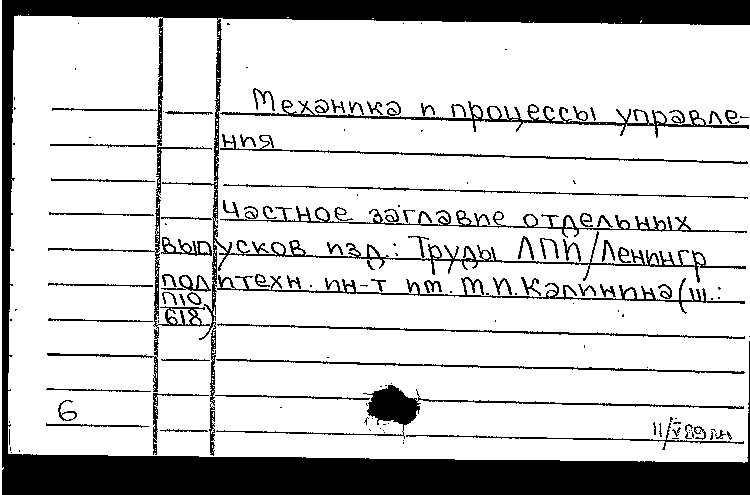 Механика и процессы управле-
ния
Частное заглавие отдельных
выпусков изд.: Труды ЛПИ/Ленингр
политехн. ин-т им. М.И.Калинина(ш.:
П10
618)
6
11/V 89